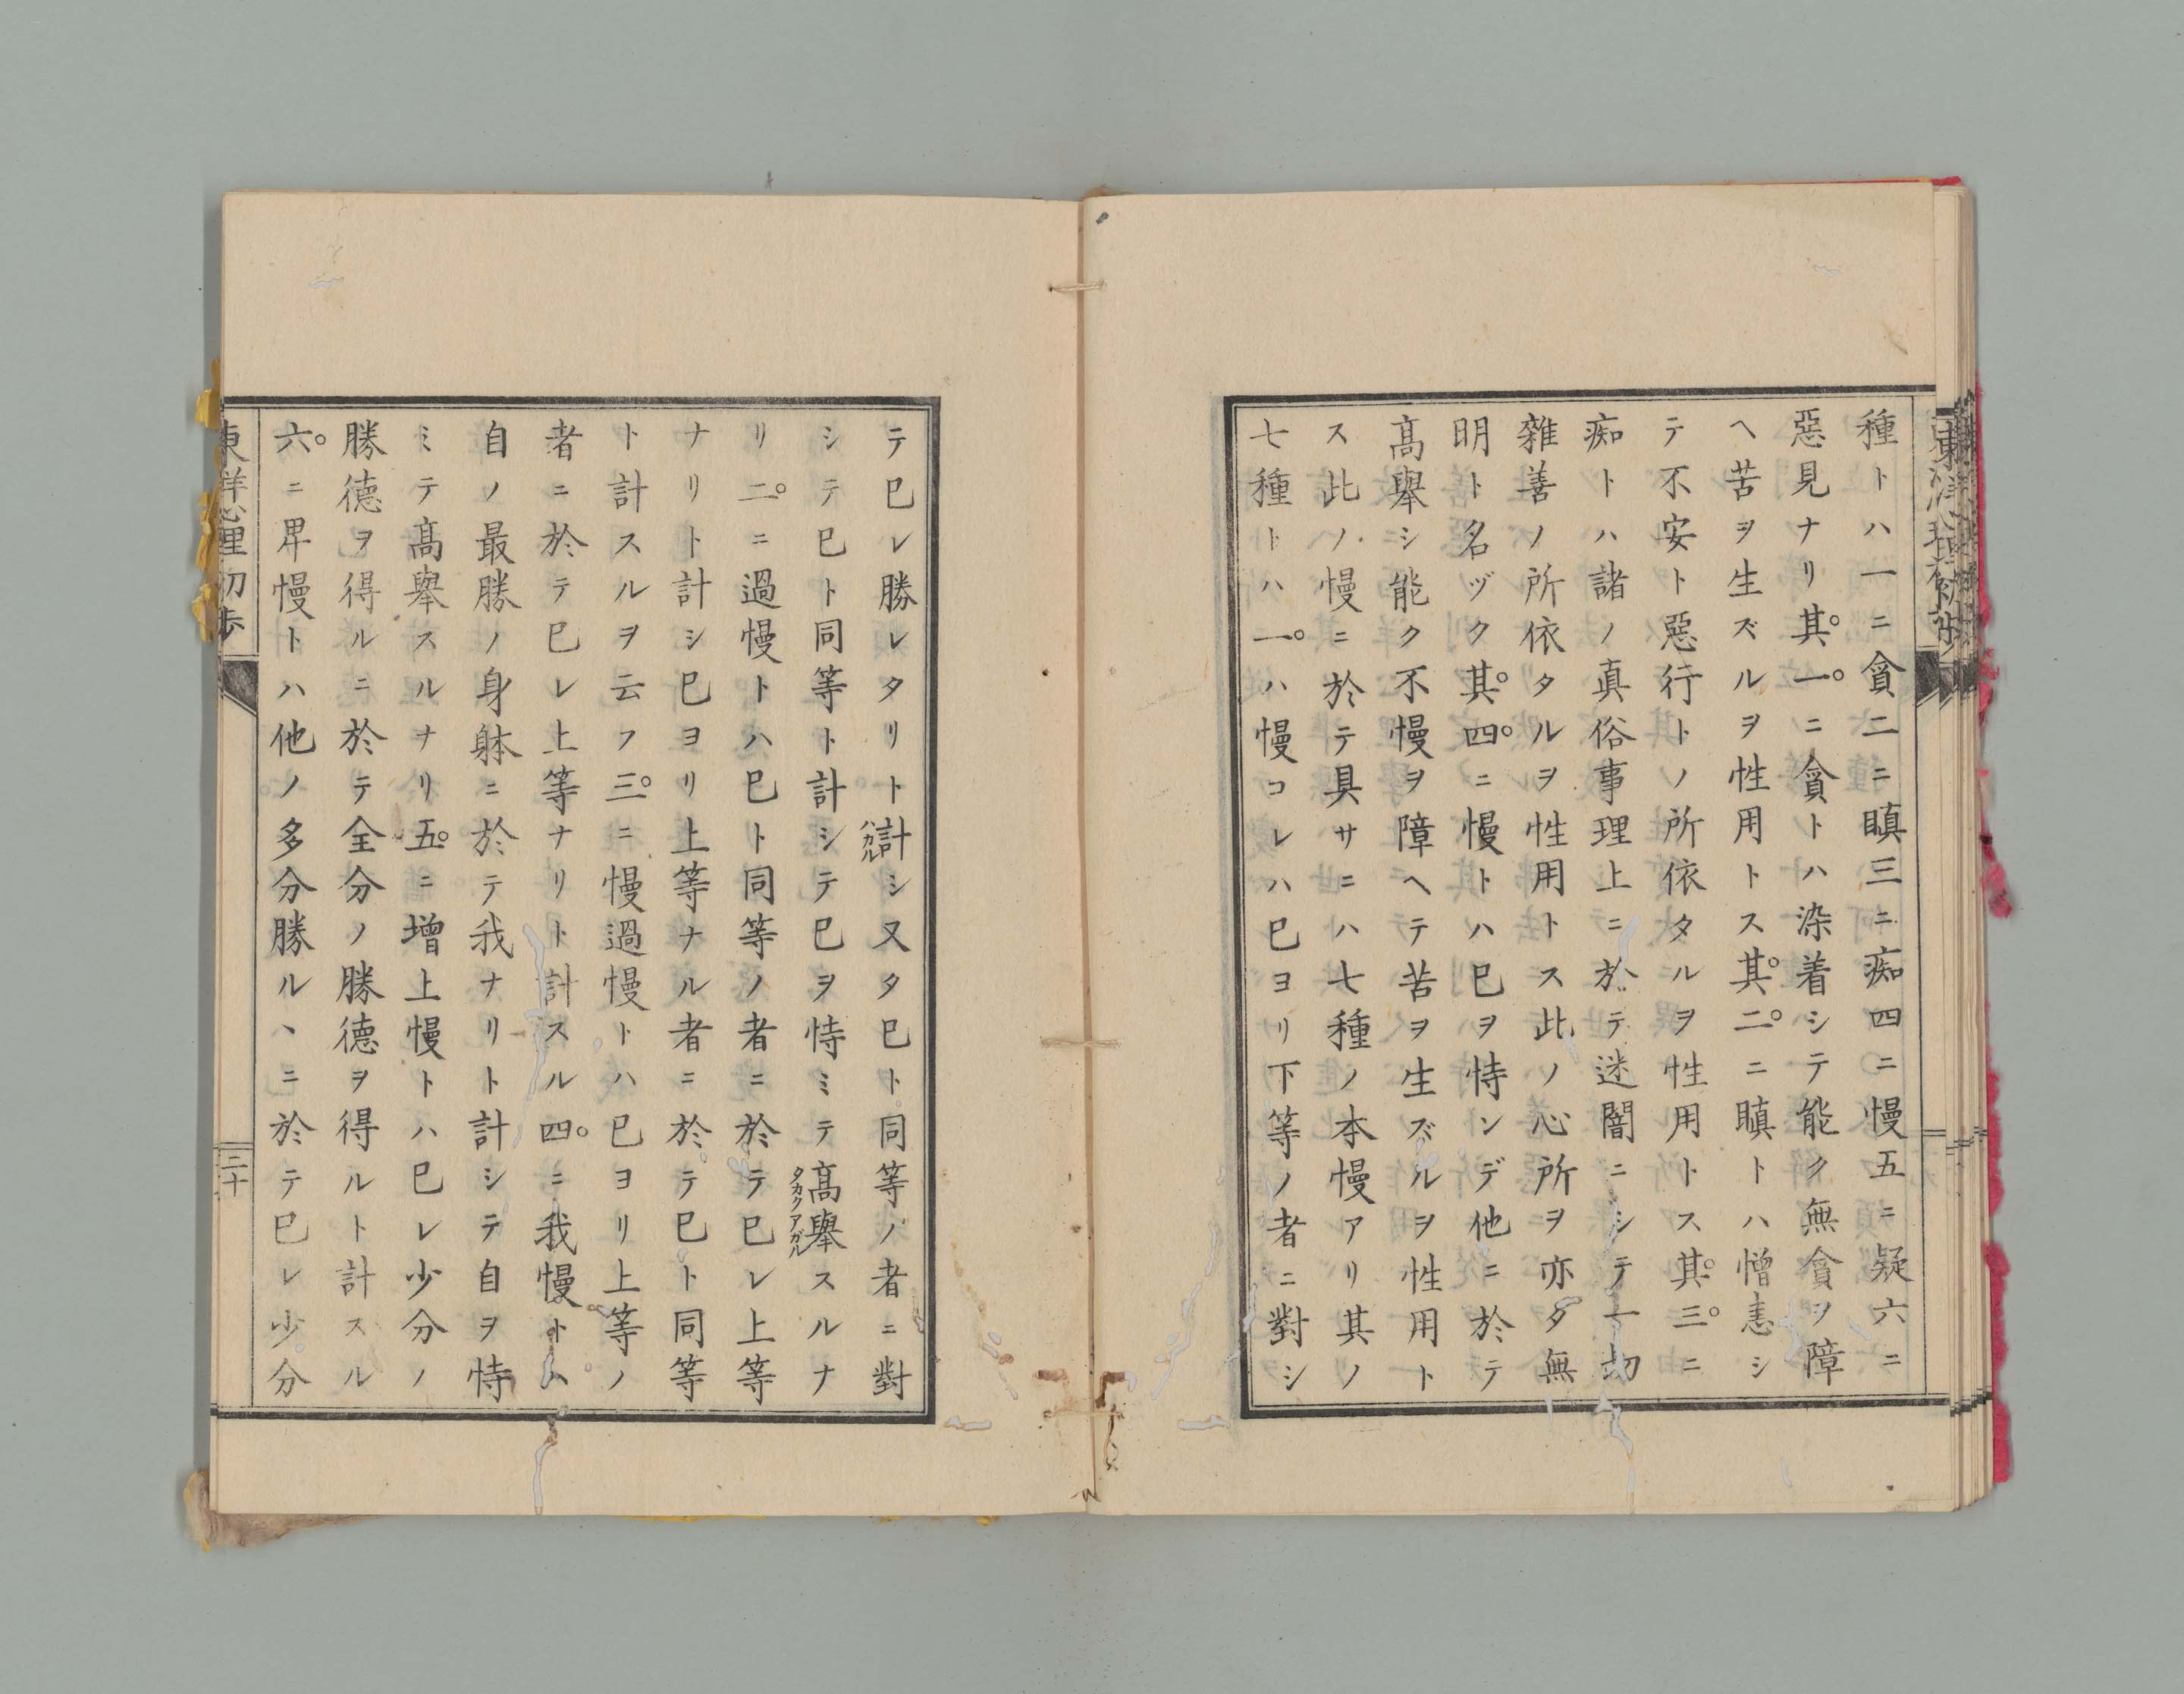 東洋心理初歩
種トハ一ニ貪二ニ瞋三ニ痴四ニ慢五ニ疑六ニ
惡見ナリ其。一。ニ貪トハ染着シテ能ク無貪ヲ障
ヘ苦ヲ生ズルヲ性用トス其。二。ニ瞋トハ憎恚シ
テ不安ト惡行トノ所依タルヲ性用トス其。三。ニ
痴トハ諸ノ真俗事理上ニ於テ迷闇ニシテ一切
雜善ノ所依タルヲ性用トス此ノ心所ヲ亦タ無
明ト名ヅク其。四。ニ慢トハ巳ヲ恃ンデ他ニ於テ
髙舉シ能ク不慢ヲ障ヘテ苦ヲ生ズルヲ性用ト
ス此ノ慢ニ於テ具サニハ七種ノ本慢アリ其ノ
七種トハ一。ハ慢コレハ巳ヨリ下等ノ者ニ對シ
テ巳レ勝レタリト計シ又タ巳ト同等ノ者ニ對
ハカル
シテ巳ト同等ト計シテ巳ヲ恃ミテ髙舉スルナ
タカクアガル
リ二。ニ過慢トハ巳ト同等ノ者ニ於テ巳レ上等
ナリト計シ巳ヨリ上等ナル者ニ於テ巳ト同等
ト計スルヲ云フ三。ニ慢過慢トハ巳ヨリ上等ノ
者ニ於テ巳レ上等ナリト計スル四。ニ我慢トハ
自ノ最勝ノ身躰ニ於テ我ナリト計シテ自ヲ恃
ミテ髙舉スルナリ五。ニ増上慢トハ巳レ少分ノ
勝德ヲ得ルニ於テ全分ノ勝德ヲ得ルト計スル
六。ニ卑慢トハ他ノ多分勝ルヽニ於テ巳レ少分
東洋心理初歩
二十